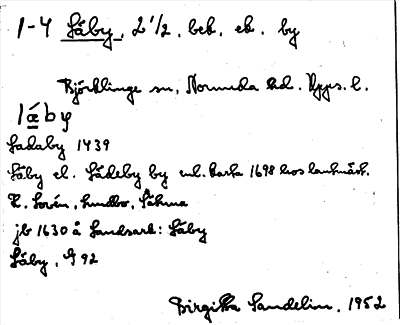 1-4 Låby, 2 1/2, beb. ed. by
Björklinge sn, Norunda hd. Upps. l.
lǽby
Ladaby 1439
Låby el. Lådeby by enl. karta 1698 hos lantmät.
K. Lovén, Lundbo, Låhma
jb 1630 å Landsark: Låby
Låby, G 92
Birgitta Sandelin, 1952